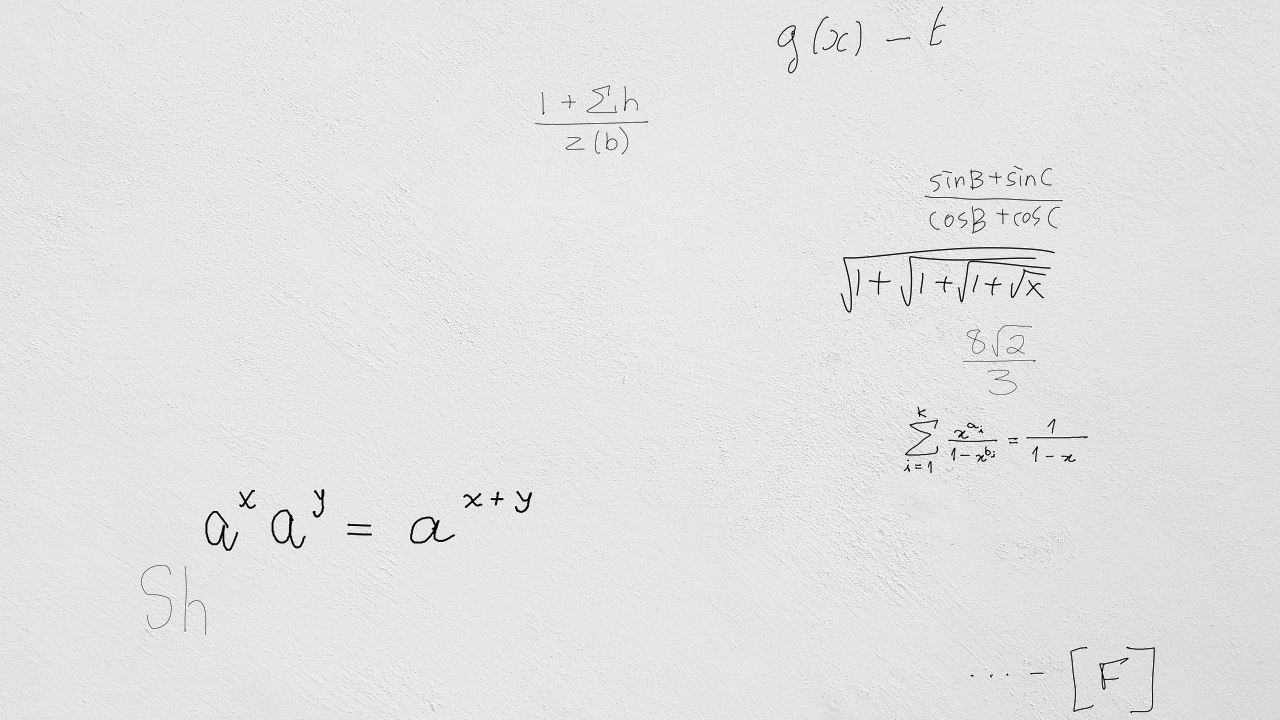 g(x) - t
\frac{1 + \sum h}{z(b)}
\frac{\sin B + \sin C}{\cos B + \cos C}
\sqrt{1 + \sqrt{1 + \sqrt{1 + \sqrt{x}}}}
\frac{8\sqrt{2}}{3}
\sum_{i=1}^{k} \frac{x^{a_i}}{1 - x^{b_i}} = \frac{1}{1 - x}
a^x a^y = a^{x + y}
Sh
\cdots - [F]